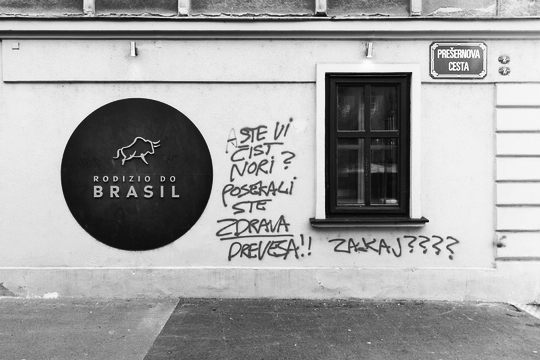 PREŠERNOVA
CESTA
RODIZIO DO
BRASIL
A STE VI
ČIST
NORI?
POSEKALI
STE
ZDRAVA
DREVESA!! ZAKAJ????